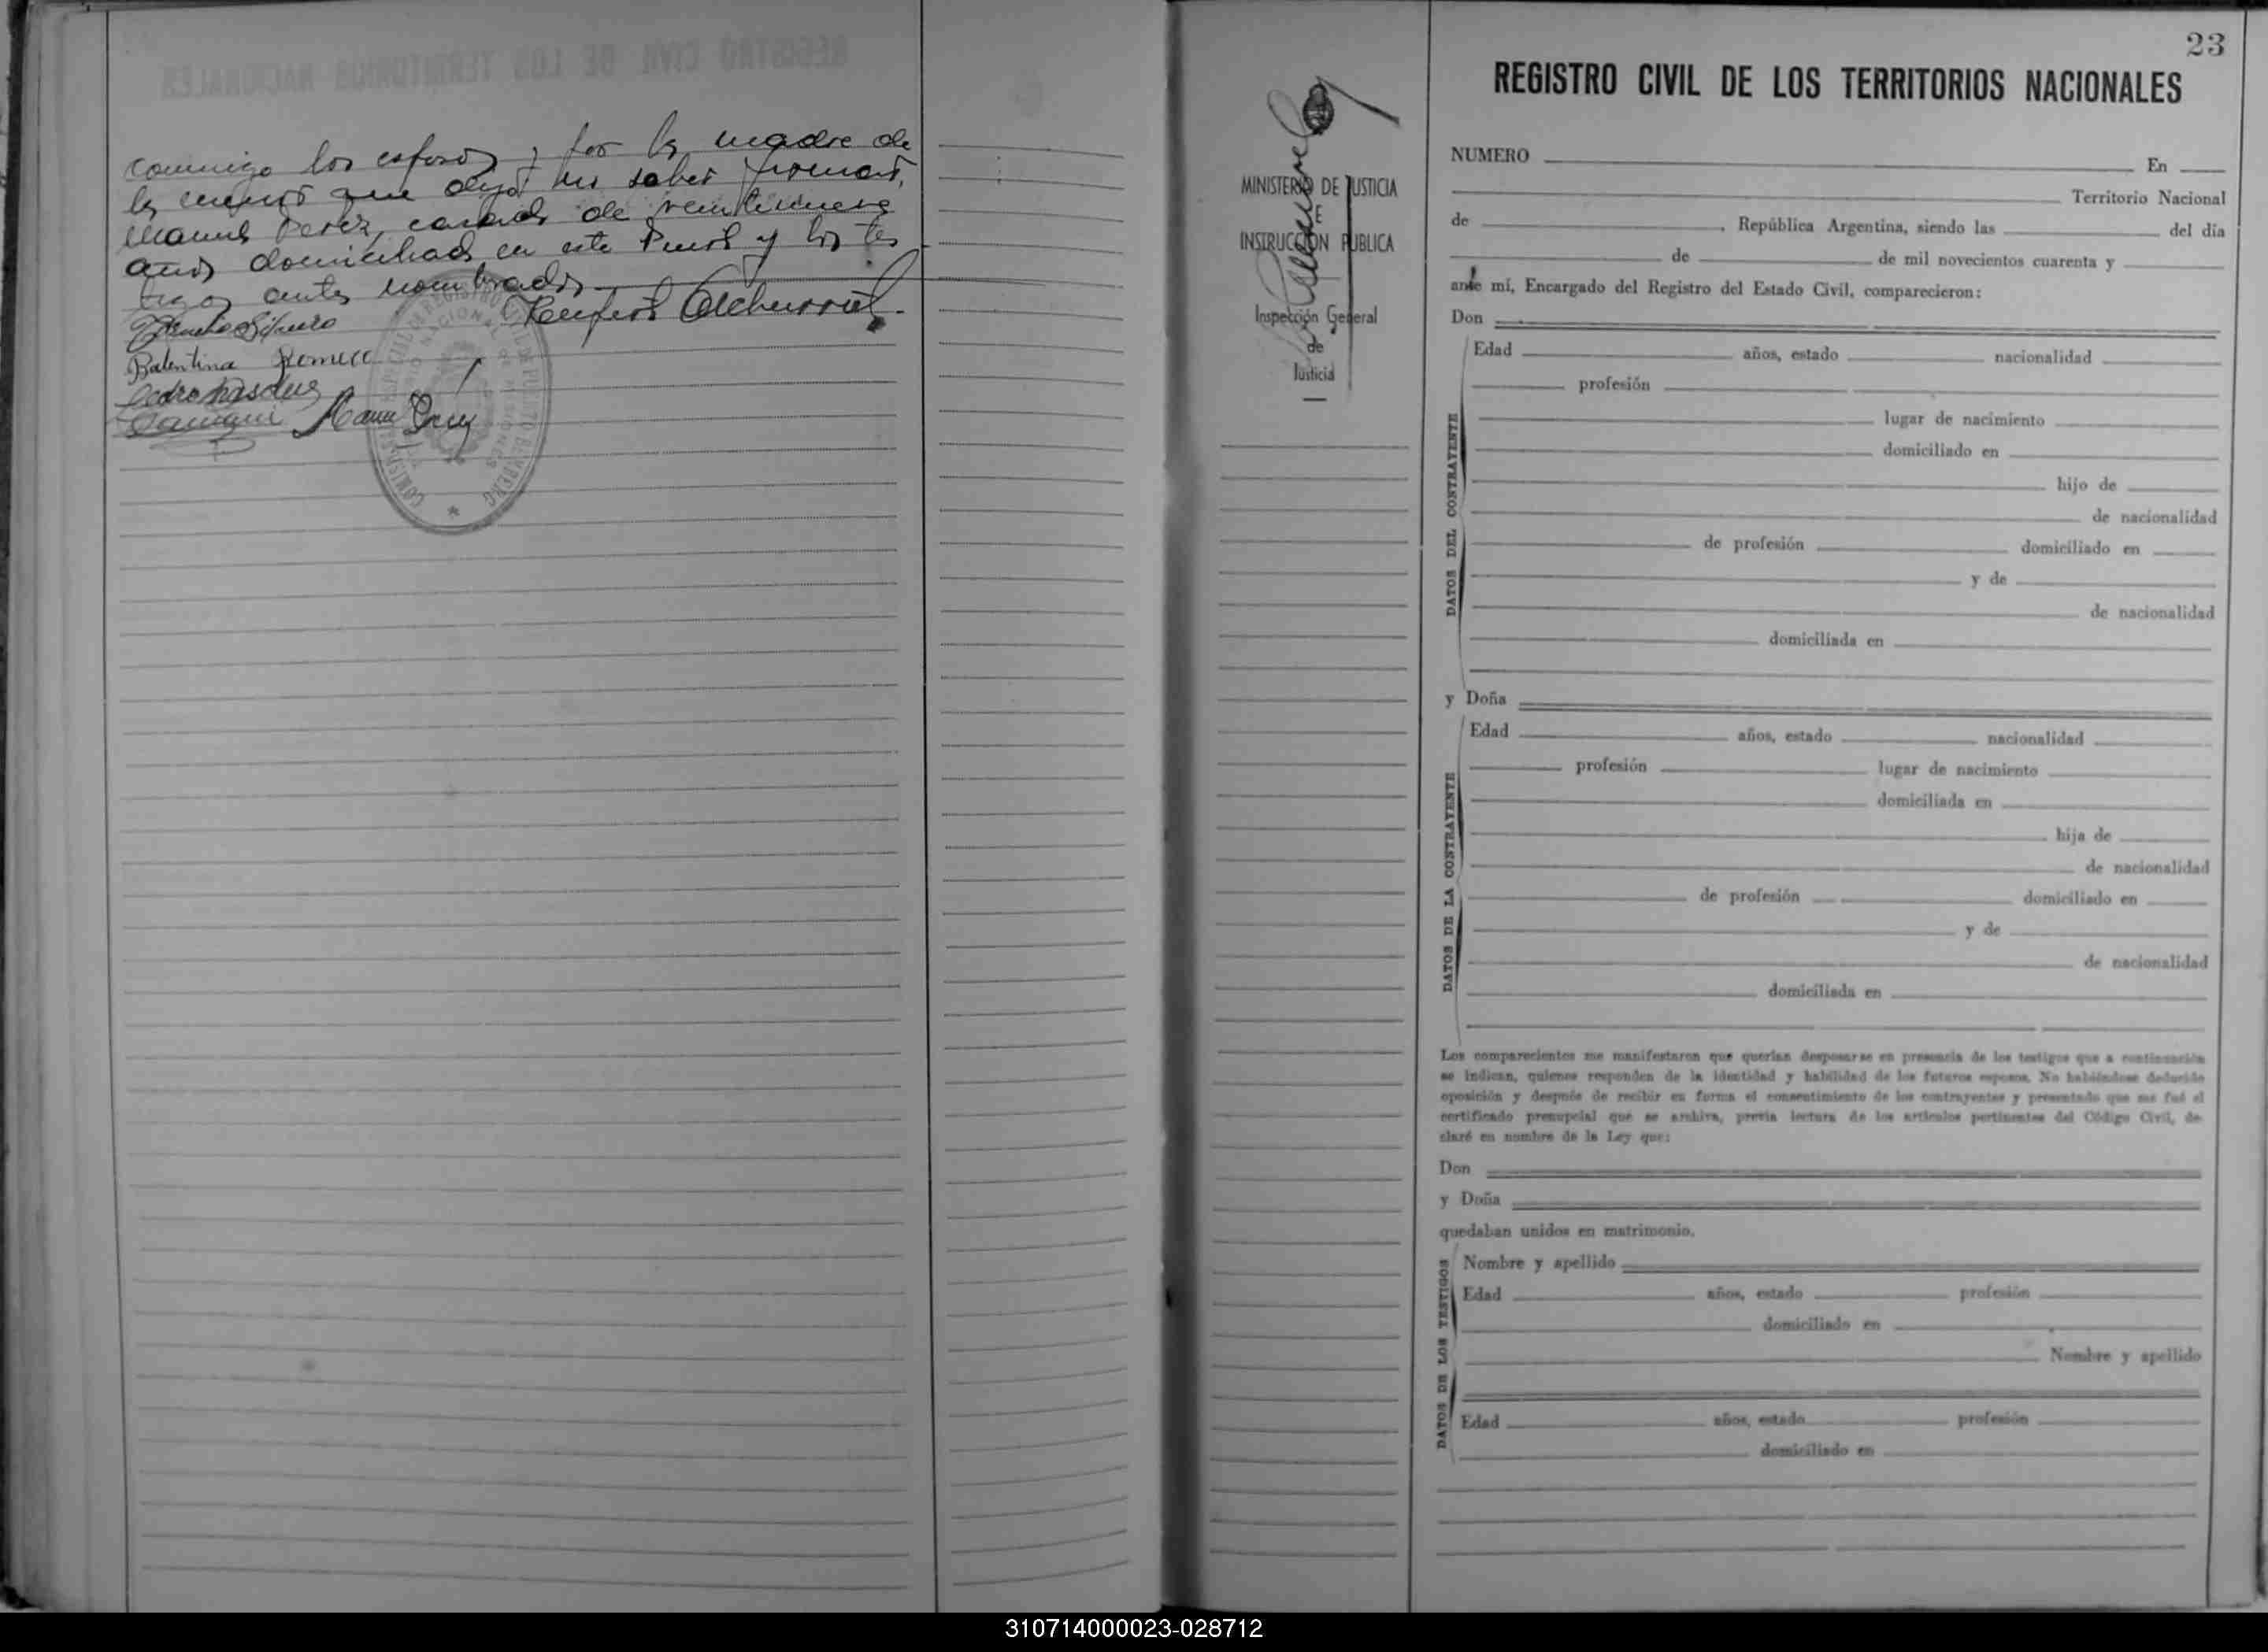 conmigo los esposos, por la madre de
la menor que dijo no saber firmar,
Manuel Perez, casado de veintinueve
años domiciliado en este Puerto y los tes
tigos antes nombrados
Balentina Romero
REGISTRO CIVIL DE LOS TERRITORIOS NACIONALES
23
MINISTERIO DE JUSTICIA
E
INSTRUCCION PUBLICA
Inspección General
de
Justicia
NUMERO En
Territorio Nacional
de , República Argentina, siendo las del día
de de mil novecientos cuarenta y
ante mí, Encargado del Registro del Estado Civil, comparecieron:
Don
DATOS DEL CONTRAYENTE
Edad años, estado nacionalidad
profesión
lugar de nacimiento
domiciliado en
hijo de
de nacionalidad
de profesión domiciliado en
y de
de nacionalidad
domiciliada en
y Doña
DATOS DE LA CONTRAYENTE
Edad años, estado nacionalidad
profesión lugar de nacimiento
domiciliada en
hija de
de nacionalidad
de profesión domiciliado en
y de
de nacionalidad
domiciliada en
Los comparecientes me manifestaron que querían desposarse en presencia de los testigos que a continuación
se indican, quienes responden de la identidad y habilidad de los futuros esposos. No habiéndose deducido
oposición y después de recibir en forma el consentimiento de los contrayentes y presentado que me fué el
certificado prenupcial que se archiva, previa lectura de los artículos pertinentes del Código Civil, de-
claré en nombre de la Ley que:
Don
y Doña
quedaban unidos en matrimonio.
DATOS DE LOS TESTIGOS
Nombre y apellido
Edad años, estado profesión
domiciliado en
Nombre y apellido
Edad años, estado profesión
domiciliado en
310714000023-028712